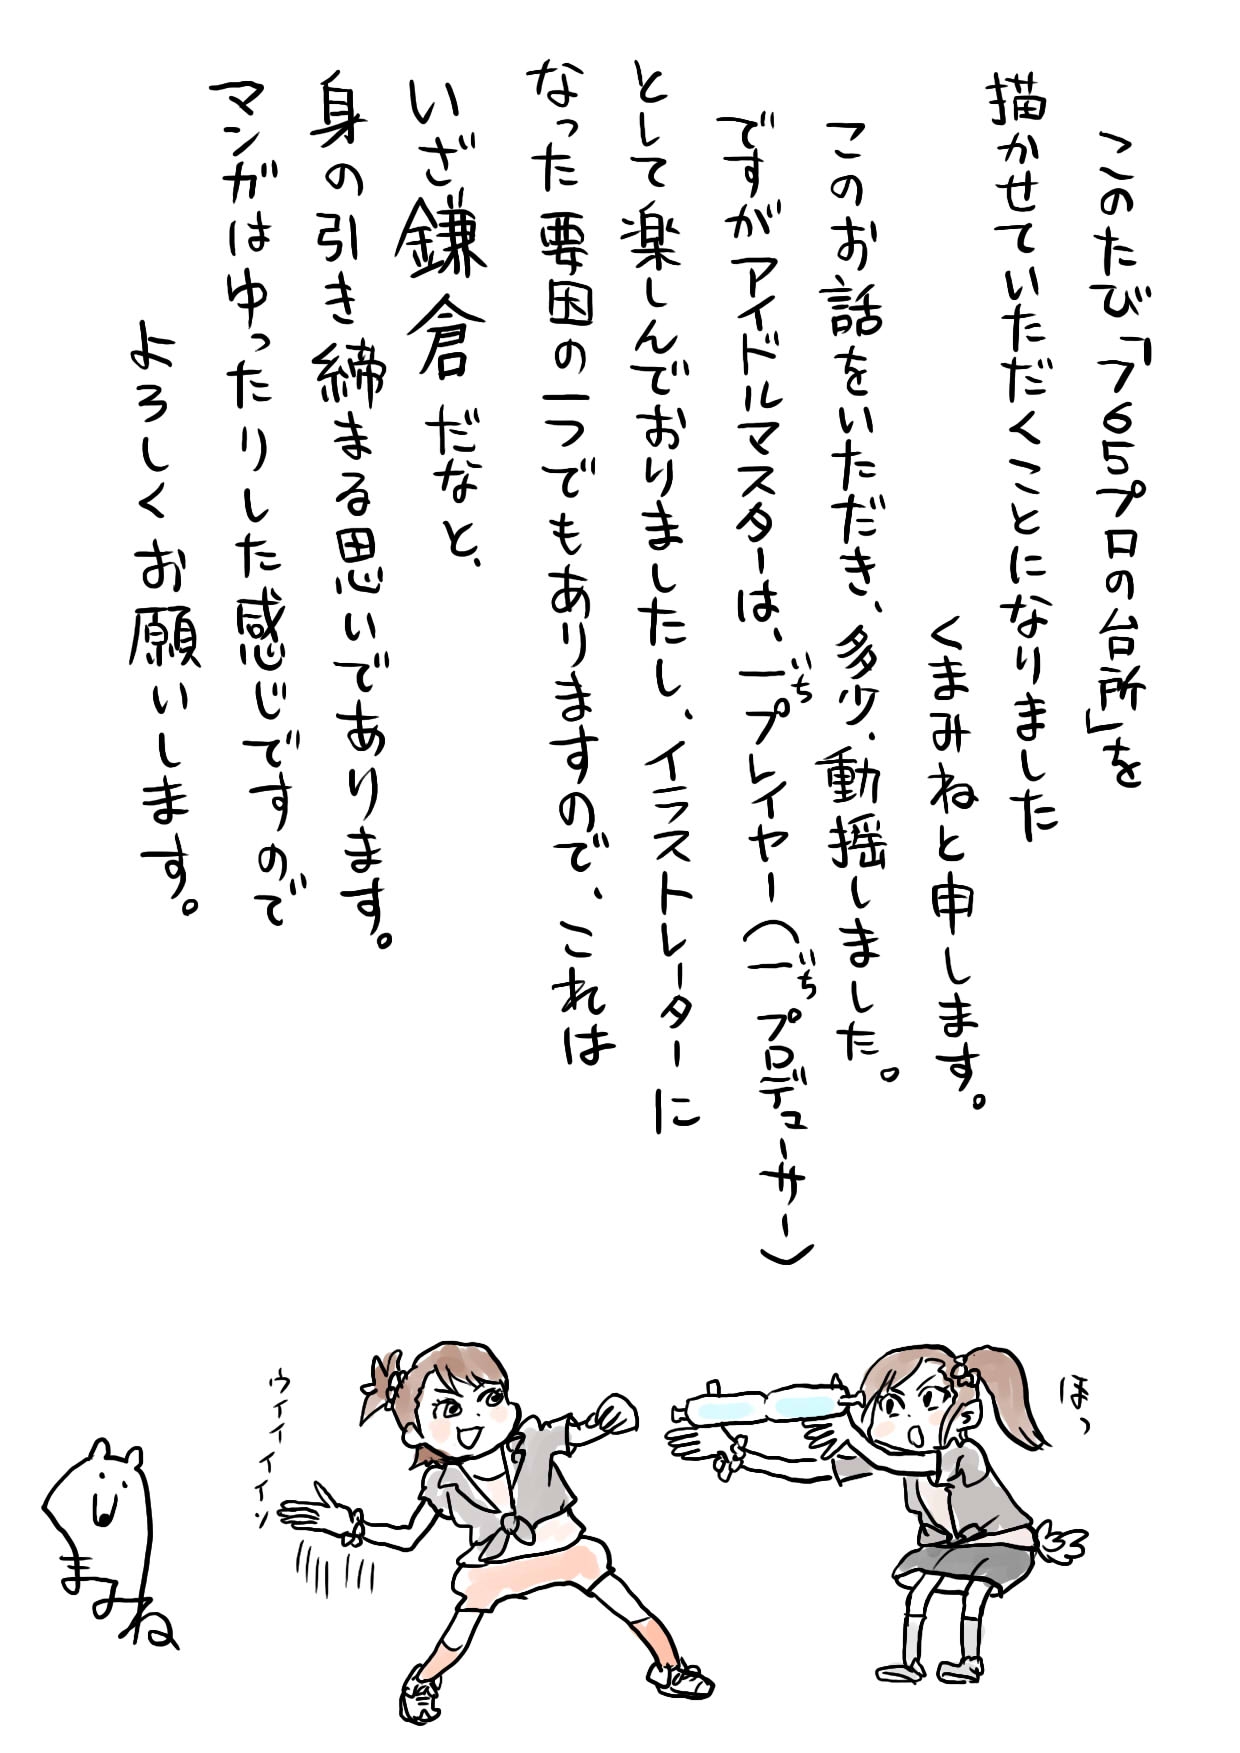 このたび「765プロの台所」を
描かせていただくことになりました
くまみねと申します。
このお話をいただき、多少、動揺しました。
ですがアイドルマスターは、一プレイヤー(一プロデューサー)
いち
いち
として楽しんでおりましたし、イラストレーターに
なった要因の一つでもありますので、これは
いざ鎌倉だなと、
身の引き締まる思いであります。
マンガはゆったりした感じですので
よろしくお願いします。
ほっ
ウイイイイン
まみね